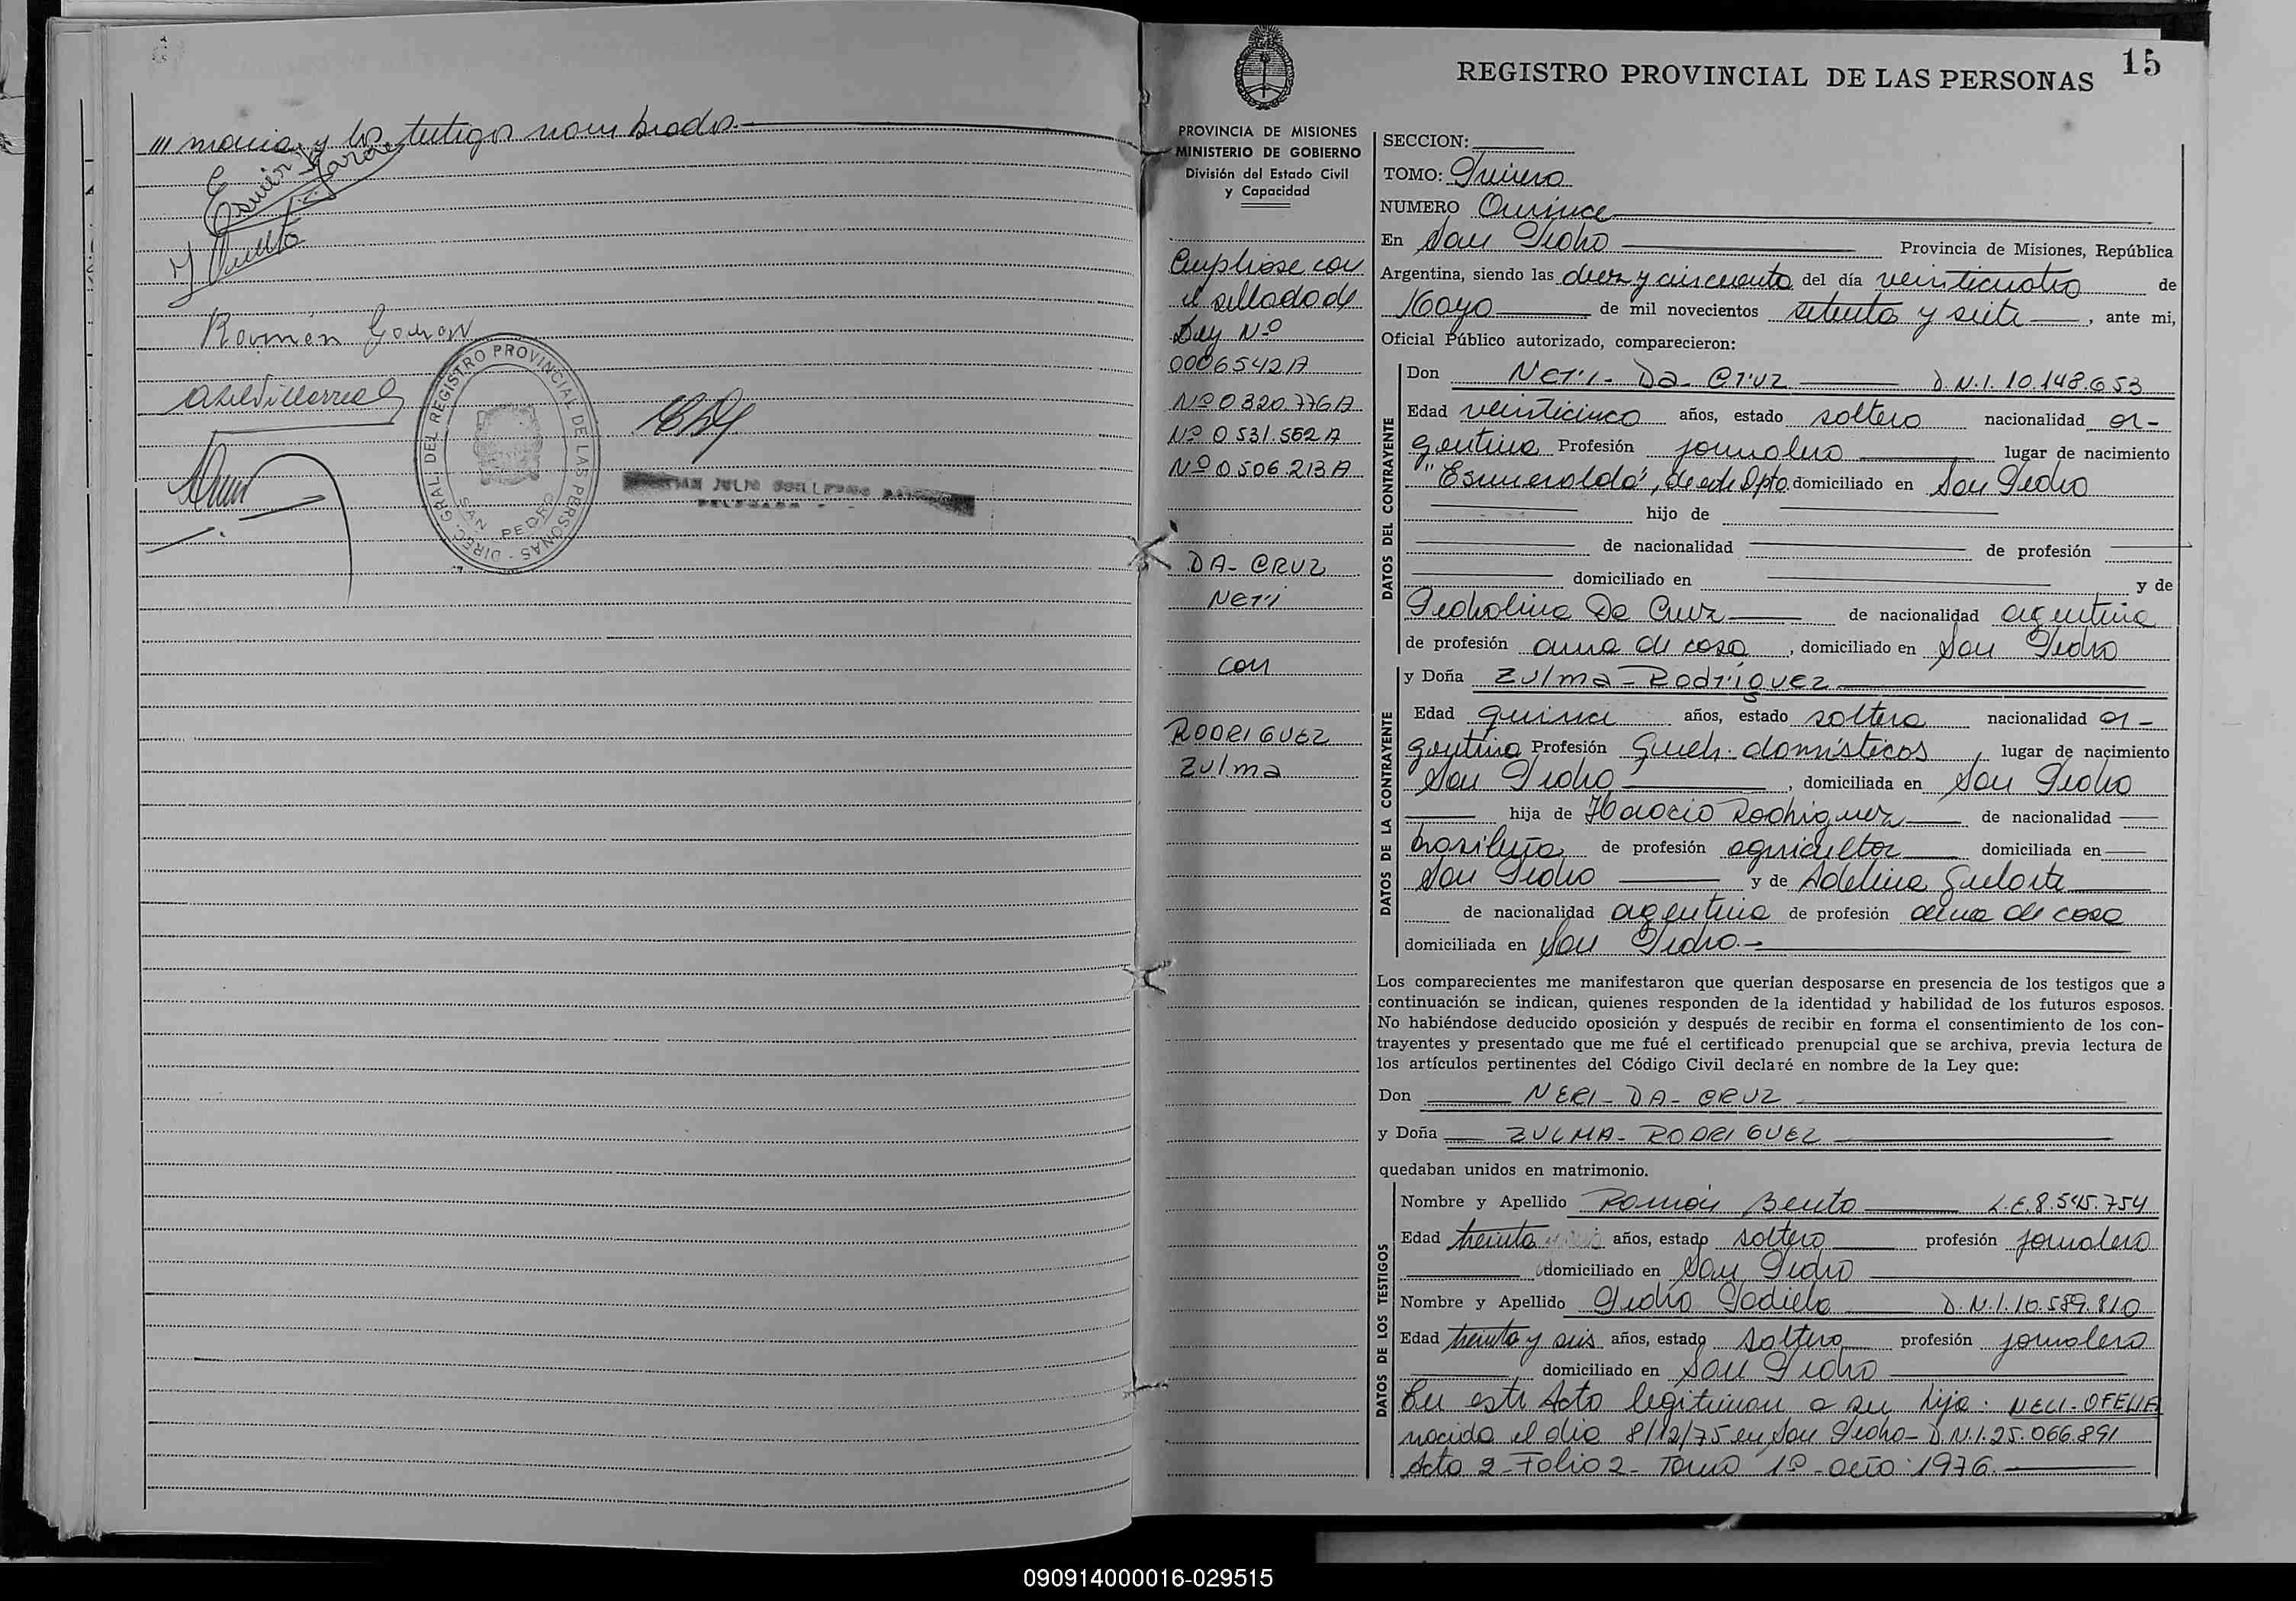 /// moria, y los testigos nombrados.
Ramón
DIREC. GRAL. DEL REGISTRO PROVINCIAL DE LAS PERSONAS
SAN PEDRO
15
REGISTRO PROVINCIAL DE LAS PERSONAS
PROVINCIA DE MISIONES
MINISTERIO DE GOBIERNO
División del Estado Civil
y Capacidad
Cumpliose con
el sellado de
Ley Nº
0006542A
Nº 0320.776A
Nº 0531.562A
Nº 0506.213A
DA- CRUZ
Neri
con
RODRIGUEZ
Zulma
SECCION:
TOMO: Primero
NUMERO Quince
En San Pedro Provincia de Misiones, República
Argentina, siendo las diez y cincuenta del día veinticuatro de
Mayo de mil novecientos setenta y siete, ante mi,
Oficial Público autorizado, comparecieron:
DATOS DEL CONTRAYENTE
Don Neri- Da- Cruz D.N.I. 10.148.653
Edad veinticinco años, estado soltero nacionalidad ar-
gentina Profesión jornalero lugar de nacimiento
"Esmeralda", de este Dpto. domiciliado en San Pedro
hijo de
de nacionalidad de profesión
domiciliado en y de
Pedrolina Da Cruz de nacionalidad argentina
de profesión ama de casa, domiciliado en San Pedro
DATOS DE LA CONTRAYENTE
y Doña Zulma- Rodríguez
Edad quince años, estado soltera nacionalidad ar-
gentina Profesión Queh. domésticos, lugar de nacimiento
San Pedro, domiciliada en San Pedro
hija de Horacio Rodriguez de nacionalidad
brasileña de profesión agricultor domiciliada en
San Pedro y de Adelina
de nacionalidad argentina de profesión ama de casa
domiciliada en San Pedro.-
Los comparecientes me manifestaron que querían desposarse en presencia de los testigos que a
continuación se indican, quienes responden de la identidad y habilidad de los futuros esposos.
No habiéndose deducido oposición y después de recibir en forma el consentimiento de los con-
trayentes y presentado que me fué el certificado prenupcial que se archiva, previa lectura de
los artículos pertinentes del Código Civil declaré en nombre de la Ley que:
Don NERI- DA- CRUZ
y Doña ZULMA- RODRIGUEZ
quedaban unidos en matrimonio.
DATOS DE LOS TESTIGOS
Nombre y Apellido Ramón Bento L.E. 8.545.754
Edad treinta años, estado soltero profesión jornalero
domiciliado en San Pedro
Nombre y Apellido Pedro Padielo D.N.I. 10.589.810
Edad treinta y seis años, estado soltero profesión jornalero
domiciliado en San Pedro
En este Acto legitiman a su hija: NELI- OFELIA
nacida el dia 8/12/75 en San Pedro- D.N.I. 25.066.891
Acta 2- Folio 2- Tomo 1º- año: 1976.
090914000016-029515